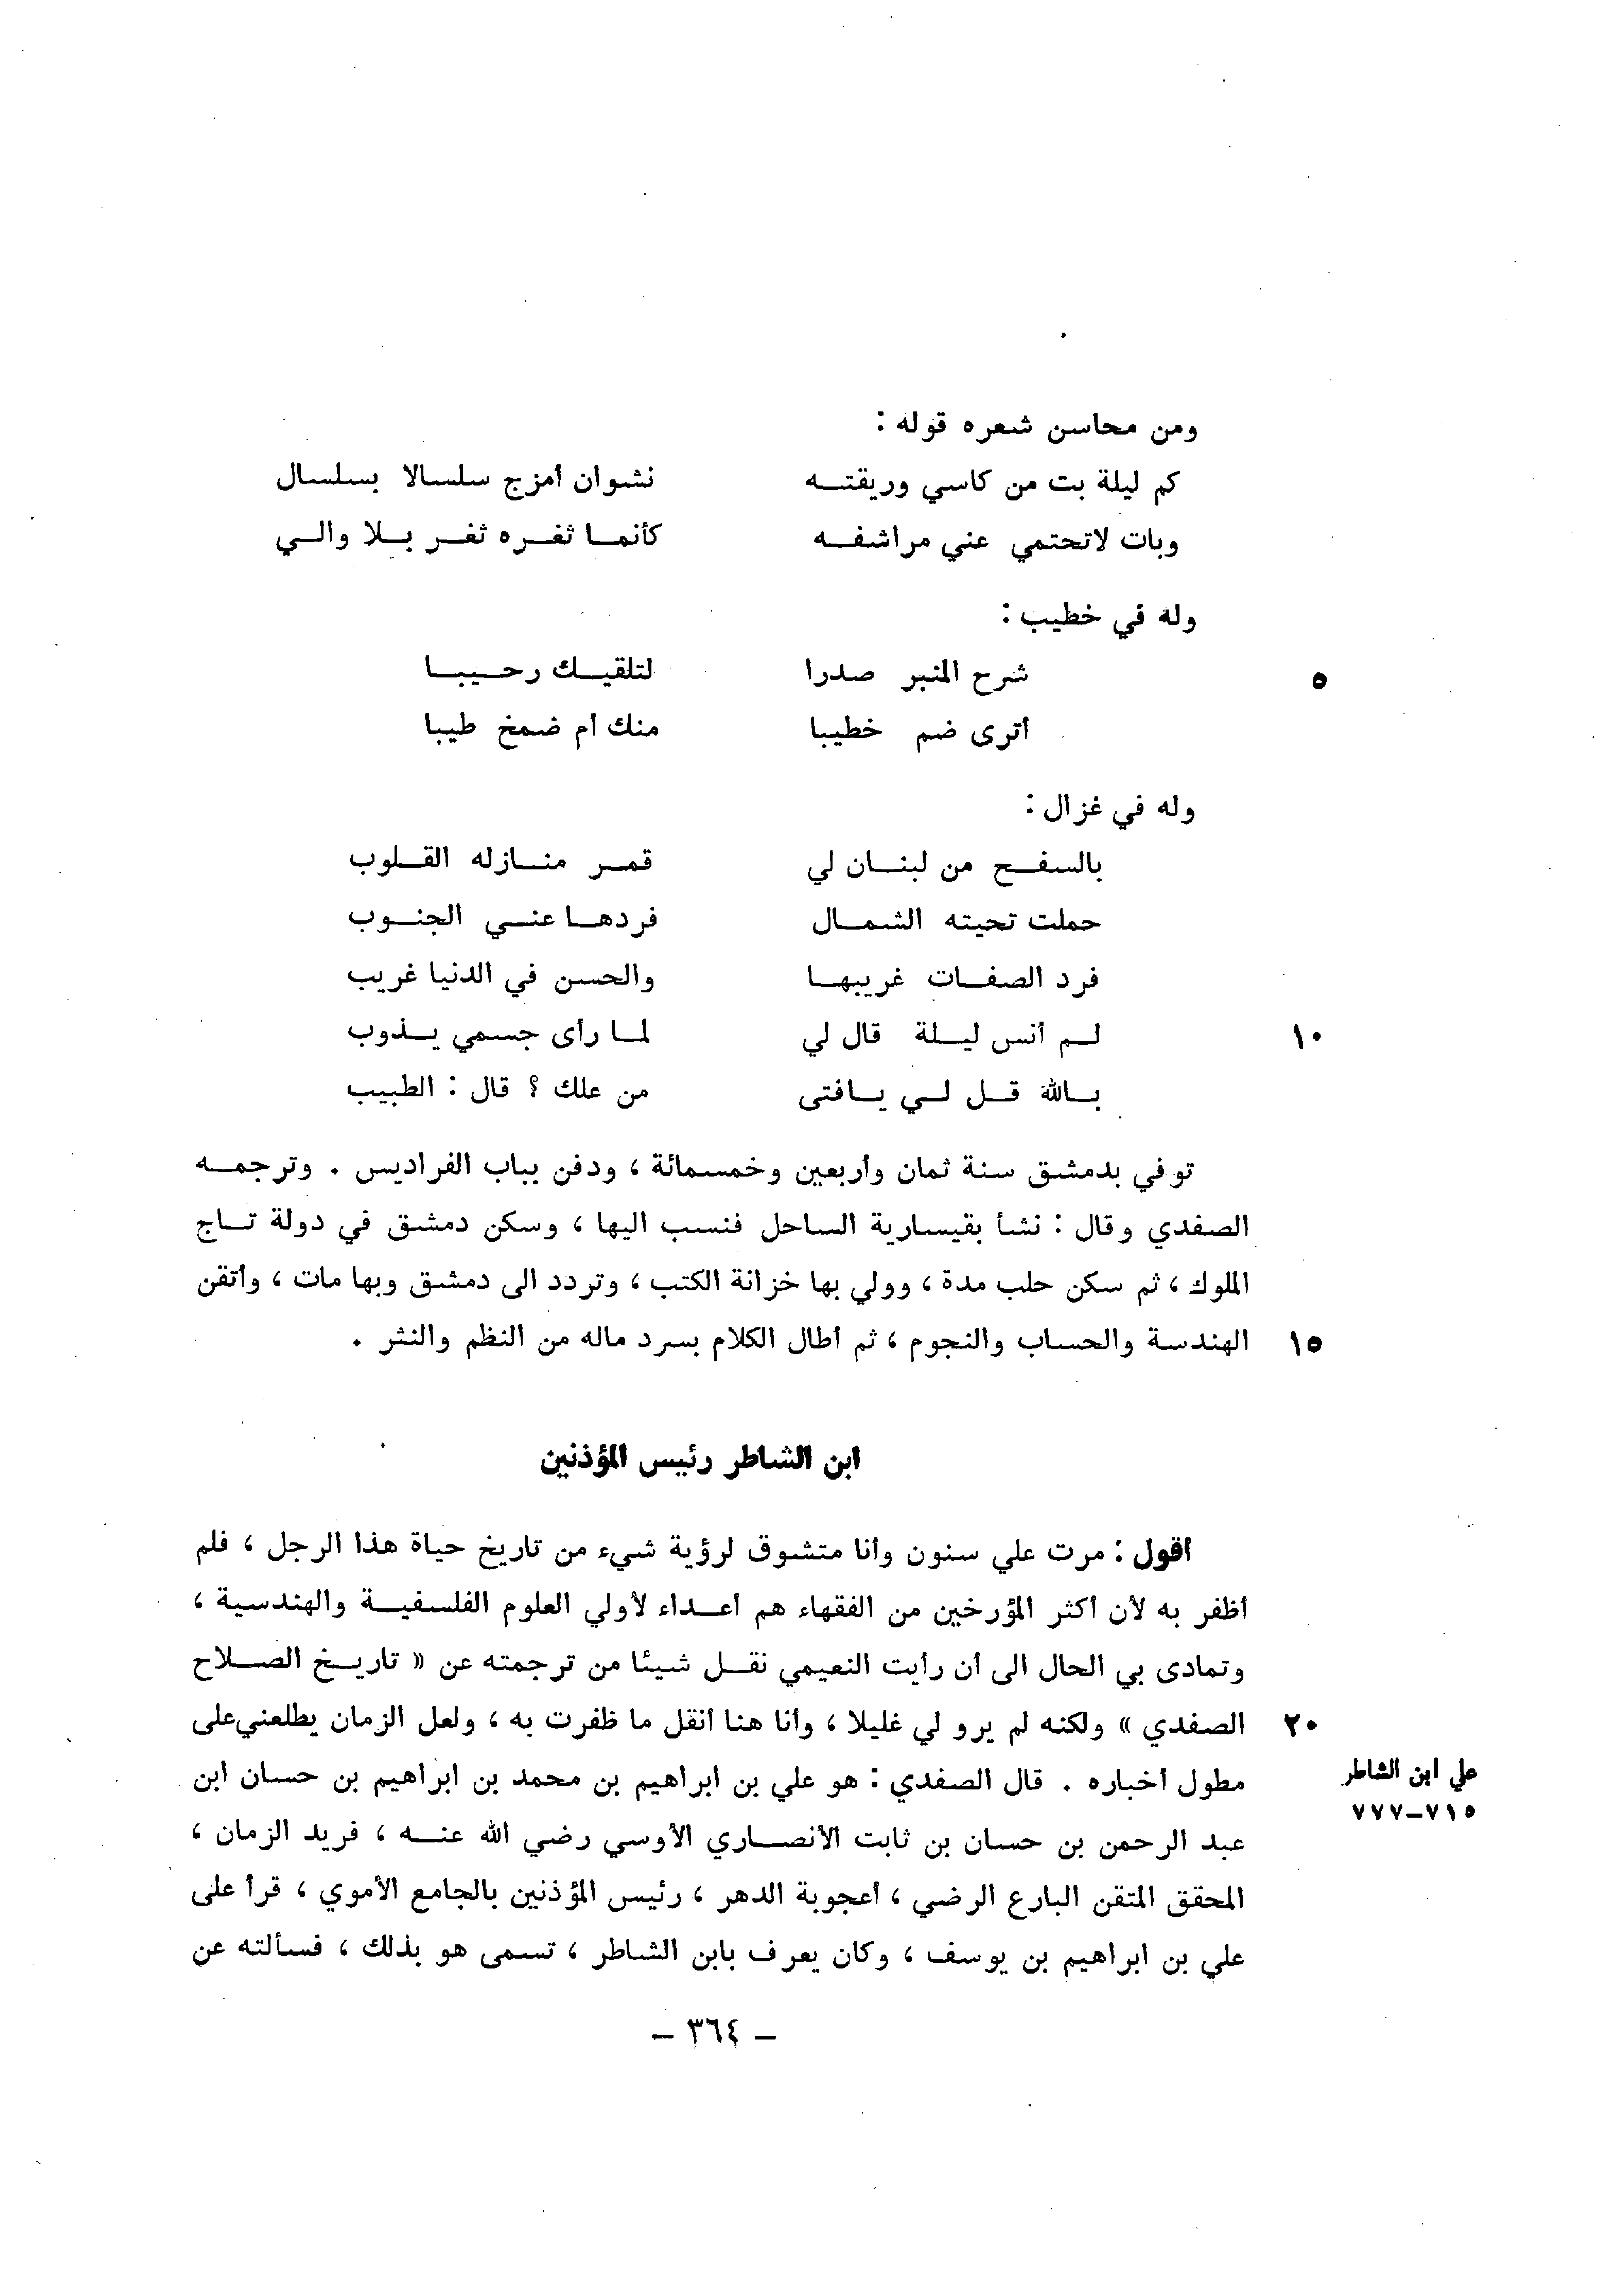 ومن محاسن شعره قوله :
كم ليلة بت من كاسي وريقتـه نشوان أمزج سلسالا بسلسال
وبات لاتحتمي عني مراشفـه كأنمـا ثغـره ثغـر بـلا والـي
وله في خطيب :
٥ شرح المنبر صدرا لتلقيـك رحـيبـا
أترى ضم خطيبا منك أم ضمخ طيبا
وله في غزال :
بالسفـح من لبنـان لي قمـر منـازله القـلوب
حملت تحيته الشمـال فردهـا عنـي الجنـوب
فرد الصفـات غريبهـا والحسن في الدنيا غريب
١٠ لـم أنس ليـلة قال لي لمـا رأى جسمي يـذوب
بـالله قـل لـي يـافتى من علك ؟ قال : الطبيب
توفي بدمشق سنة ثمان وأربعين وخمسمائة ، ودفن بباب الفراديس . وترجمـه
الصفدي وقال : نشأ بقيسارية الساحل فنسب اليها ، وسكن دمشق في دولة تـاج
الملوك ، ثم سكن حلب مدة ، وولي بها خزانة الكتب ، وتردد الى دمشق وبها مات ، وأتقن
١٥ الهندسة والحساب والنجوم ، ثم أطال الكلام بسرد ماله من النظم والنثر .
ابن الشاطر رئيس المؤذنين
أقول : مرت علي سنون وأنا متشوق لرؤية شيء من تاريخ حياة هذا الرجل ، فلم
أظفر به لأن أكثر المؤرخين من الفقهاء هم أعـداء لأولي العلوم الفلسفيـة والهندسية ،
وتمادى بي الحال الى أن رأيت النعيمي نقـل شيئا من ترجمته عن « تاريـخ الصـلاح
٢٠ الصفدي » ولكنه لم يرو لي غليلا ، وأنا هنا أنقل ما ظفرت به ، ولعل الزمان يطلعني على
مطول أخباره . قال الصفدي : هو علي بن ابراهيم بن محمد بن ابراهيم بن حسان ابن
علي ابن الشاطر
٧١٥-٧٧٧
عبد الرحمن بن حسان بن ثابت الأنصـاري الأوسي رضي الله عنـه ، فريد الزمان ،
المحقق المتقن البارع الرضي ، أعجوبة الدهر ، رئيس المؤذنين بالجامع الأموي ، قرأ على
علي بن ابراهيم بن يوسف ، وكان يعرف بابن الشاطر ، تسمى هو بذلك ، فسألته عن
- ٣٦٤ -